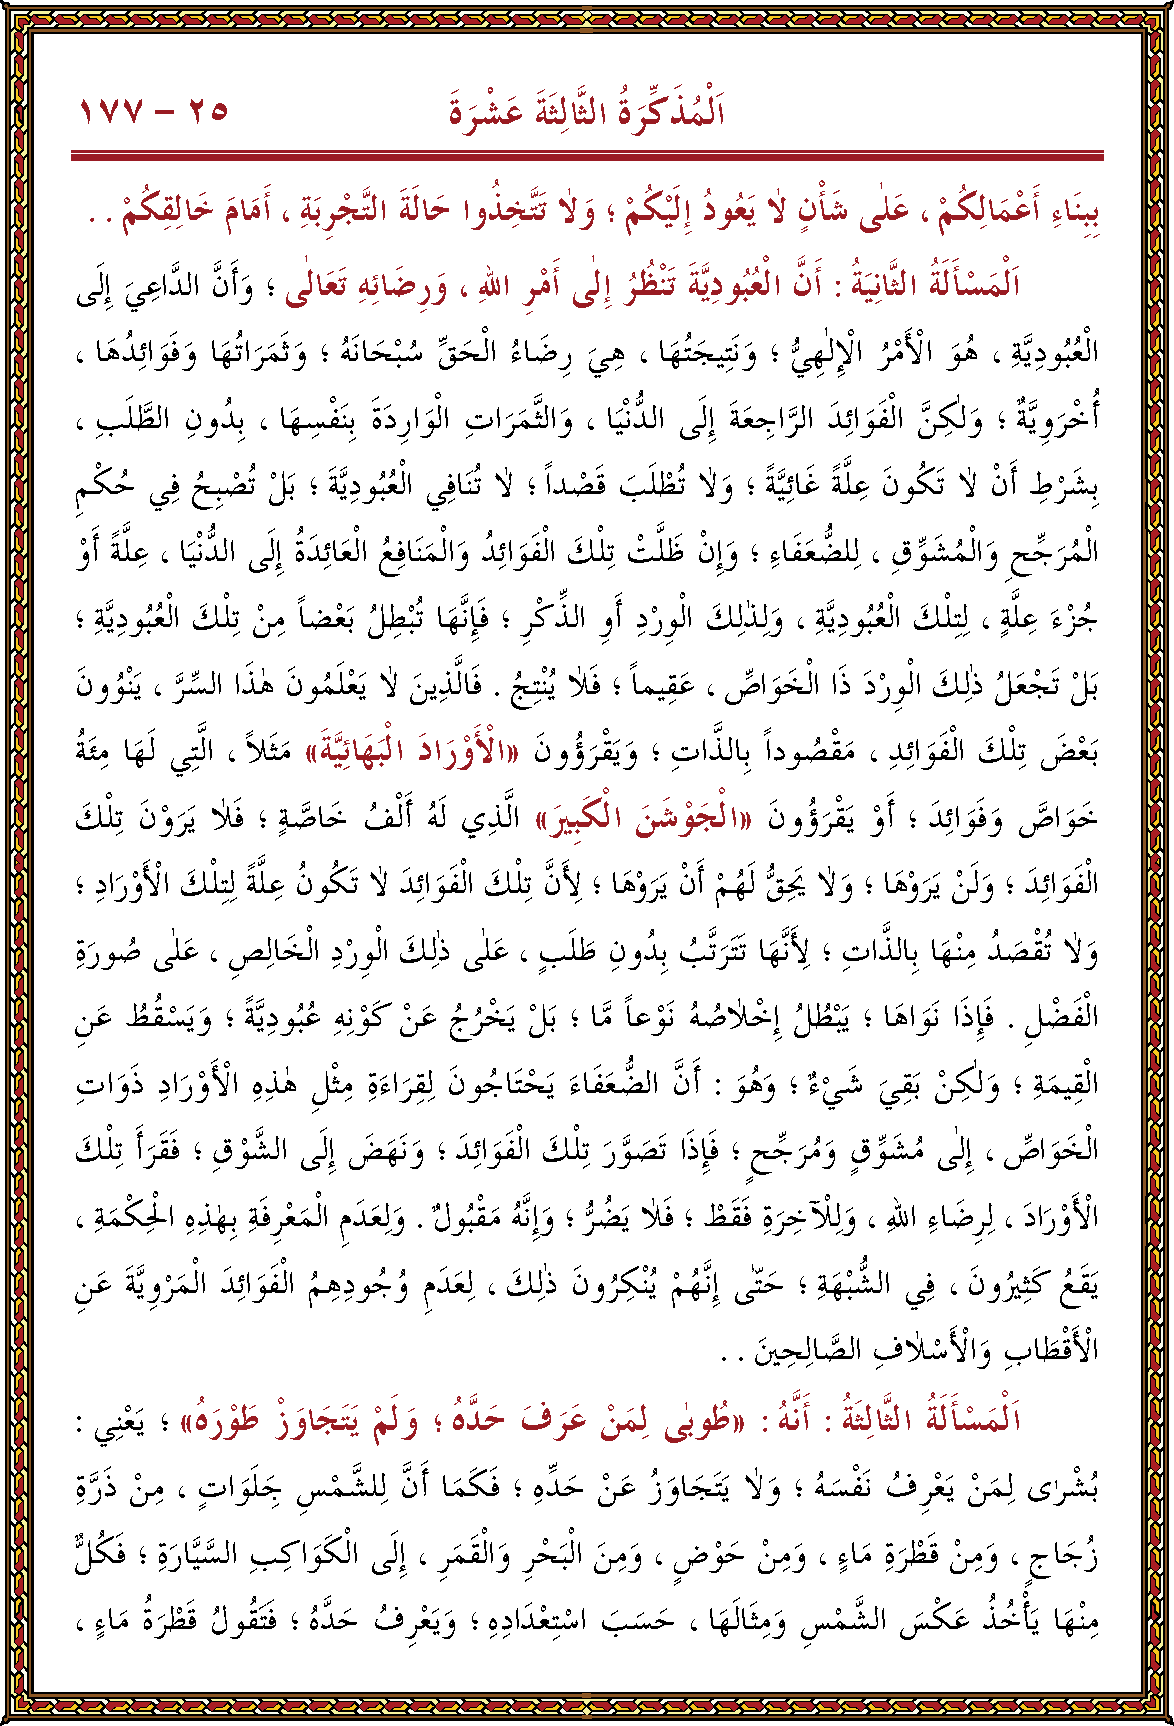 اَلْمُذَكِّرَةُ الثَّالِثَةَ عَشْرَةَ ٢٥ – ١٧٧
بِبِنَاءِ أَعْمَالِكُمْ ، عَلٰى شَأْنٍ لاَ يَعُودُ إِلَيْكُمْ ؛ وَلاَ تَتَّخِذُوا حَالَةَ التَّجْرِبَةِ ، أَمَامَ خَالِقِكُمْ . .
اَلْمَسْأَلَةُ الثَّانِيَةُ : أَنَّ الْعُبُودِيَّةَ تَنْظُرُ إِلٰى أَمْرِ اللهِ ، وَرِضَائِهِ تَعَالٰى ؛ وَأَنَّ الدَّاعِيَ إِلَى
الْعُبُودِيَّةِ ، هُوَ الْأَمْرُ الْإِلٰهِيُّ ؛ وَنَتِيجَتُهَا ، هِيَ رِضَاءُ الْحَقِّ سُبْحَانَهُ ؛ وَثَمَرَتُهَا وَفَوَائِدُهَا ،
أُخْرَوِيَّةٌ ؛ وَلٰكِنَّ الْفَوَائِدَ الرَّاجِعَةَ إِلَى الدُّنْيَا ، وَالثَّمَرَاتِ الْوَارِدَةَ بِنَفْسِهَا ، بِدُونِ الطَّلَبِ ،
بِشَرْطِ أَنْ لاَ تَكُونَ عِلَّةً غَائِيَّةً ؛ وَلاَ تُطْلَبَ قَصْداً ؛ لاَ تُنَافِي الْعُبُودِيَّةَ ؛ بَلْ تُصْبِحُ فِي حُكْمِ
الْمُرَجِّحِ وَالْمُشَوِّقِ ، لِلضُّعَفَاءِ ؛ وَإِنْ ظَلَّتْ تِلْكَ الْفَوَائِدُ وَالْمَنَافِعُ الْعَائِدَةُ إِلَى الدُّنْيَا ، عِلَّةً أَوْ
جُزْءَ عِلَّةٍ ، لِتِلْكَ الْعُبُودِيَّةِ ، وَلِذٰلِكَ الْوِرْدِ أَوِ الذِّكْرِ ؛ فَإِنَّهَا تُبْطِلُ بَعْضاً مِنْ تِلْكَ الْعُبُودِيَّةِ ؛
بَلْ تَجْعَلُ ذٰلِكَ الْوِرْدَ ذَا الْخَوَاصِّ ، عَقِيماً ؛ فَلاَ يُنْتِجُ . فَالَّذِينَ لاَ يَعْلَمُونَ هٰذَا السِّرَّ ، يَنْوُونَ
بَعْضَ تِلْكَ الْفَوَائِدِ ، مَقْصُوداً بِالذَّاتِ ؛ وَيَقْرَؤُونَ «الْأَوْرَادَ الْبَهَائِيَّةَ» مَثَلاً ، الَّتِي لَهَا مِئَةُ
خَوَاصَّ وَفَوَائِدَ ؛ أَوْ يَقْرَؤُونَ «الْجَوْشَنَ الْكَبِيرَ» الَّذِي لَهُ أَلْفُ خَاصَّةٍ ؛ فَلاَ يَرَوْنَ تِلْكَ
الْفَوَائِدَ ؛ وَلَنْ يَرَوْهَا ؛ وَلاَ يَحِقُّ لَهُمْ أَنْ يَرَوْهَا ؛ لِأَنَّ تِلْكَ الْفَوَائِدَ لاَ تَكُونُ عِلَّةً لِتِلْكَ الْأَوْرَادِ ؛
وَلاَ تُقْصَدُ مِنْهَا بِالذَّاتِ ؛ لِأَنَّهَا تَتَرَتَّبُ بِدُونِ طَلَبٍ ، عَلٰى ذٰلِكَ الْوِرْدِ الْخَالِصِ ، عَلٰى صُورَةِ
الْفَضْلِ . فَإِذَا نَوَاهَا ؛ يَبْطُلُ إِخْلاَصُهُ نَوْعاً مَّا ؛ بَلْ يَخْرُجُ عَنْ كَوْنِهِ عُبُودِيَّةً ؛ وَيَسْقُطُ عَنِ
الْقِيمَةِ ؛ وَلٰكِنْ بَقِيَ شَيْءٌ ؛ وَهُوَ : أَنَّ الضُّعَفَاءَ يَحْتَاجُونَ لِقِرَاءَةِ مِثْلِ هٰذِهِ الْأَوْرَادِ ذَوَاتِ
الْخَوَاصِّ ، إِلٰى مُشَوِّقٍ وَمُرَجِّحٍ ؛ فَإِذَا تَصَوَّرَ تِلْكَ الْفَوَائِدَ ؛ وَنَهَضَ إِلَى الشَّوْقِ ؛ فَقَرَأَ تِلْكَ
الْأَوْرَادَ ، لِرِضَاءِ اللهِ ، وَلِلْآخِرَةِ فَقَطْ ؛ فَلاَ يَضُرُّ ؛ وَإِنَّهُ مَقْبُولٌ . وَلِعَدَمِ الْمَعْرِفَةِ بِهٰذِهِ الْحِكْمَةِ ،
يَقَعُ كَثِيرُونَ ، فِي الشُّبْهَةِ ؛ حَتّٰى إِنَّهُمْ يُنْكِرُونَ ذٰلِكَ ، لِعَدَمِ وُجُودِهِمُ الْفَوَائِدَ الْمَرْوِيَّةَ عَنِ
الْأَقْطَابِ وَالْأَسْلاَفِ الصَّالِحِينَ . .
اَلْمَسْأَلَةُ الثَّالِثَةُ : أَنَّهُ : «طُوبٰى لِمَنْ عَرَفَ حَدَّهُ ؛ وَلَمْ يَتَجَاوَزْ طَوْرَهُ» ؛ يَعْنِي :
بُشْرٰى لِمَنْ يَعْرِفُ نَفْسَهُ ؛ وَلاَ يَتَجَاوَزُ عَنْ حَدِّهِ ؛ فَكَمَا أَنَّ لِلشَّمْسِ جِلَوَاتٍ ، مِنْ ذَرَّةِ
زُجَاجٍ ، وَمِنْ قَطْرَةِ مَاءٍ ، وَمِنْ حَوْضٍ ، وَمِنَ الْبَحْرِ وَالْقَمَرِ ، إِلَى الْكَوَاكِبِ السَّيَّارَةِ ؛ فَكُلٌّ
مِنْهَا يَأْخُذُ عَكْسَ الشَّمْسِ وَمِثَالَهَا ، حَسَبَ اسْتِعْدَادِهِ ؛ وَيَعْرِفُ حَدَّهُ ؛ فَتَقُولُ قَطْرَةُ مَاءٍ ،